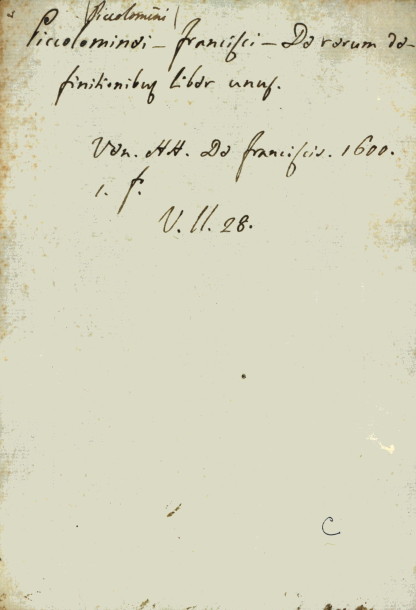 (Piccolomini)
Piccolominei - Francisci - De rerum de-
finitionibus liber unus.
Ven. HH. De Franciscis. 1600.
1. f.
V. 11. 28.
C